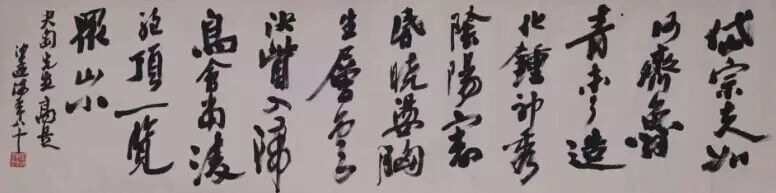 岱宗夫如
何齊魯
青未了造
化鍾神秀
陰陽割
昏曉盪胸
生層雲
決眥入歸
鳥會當凌
絕頂一覽
眾山小
先生
八十